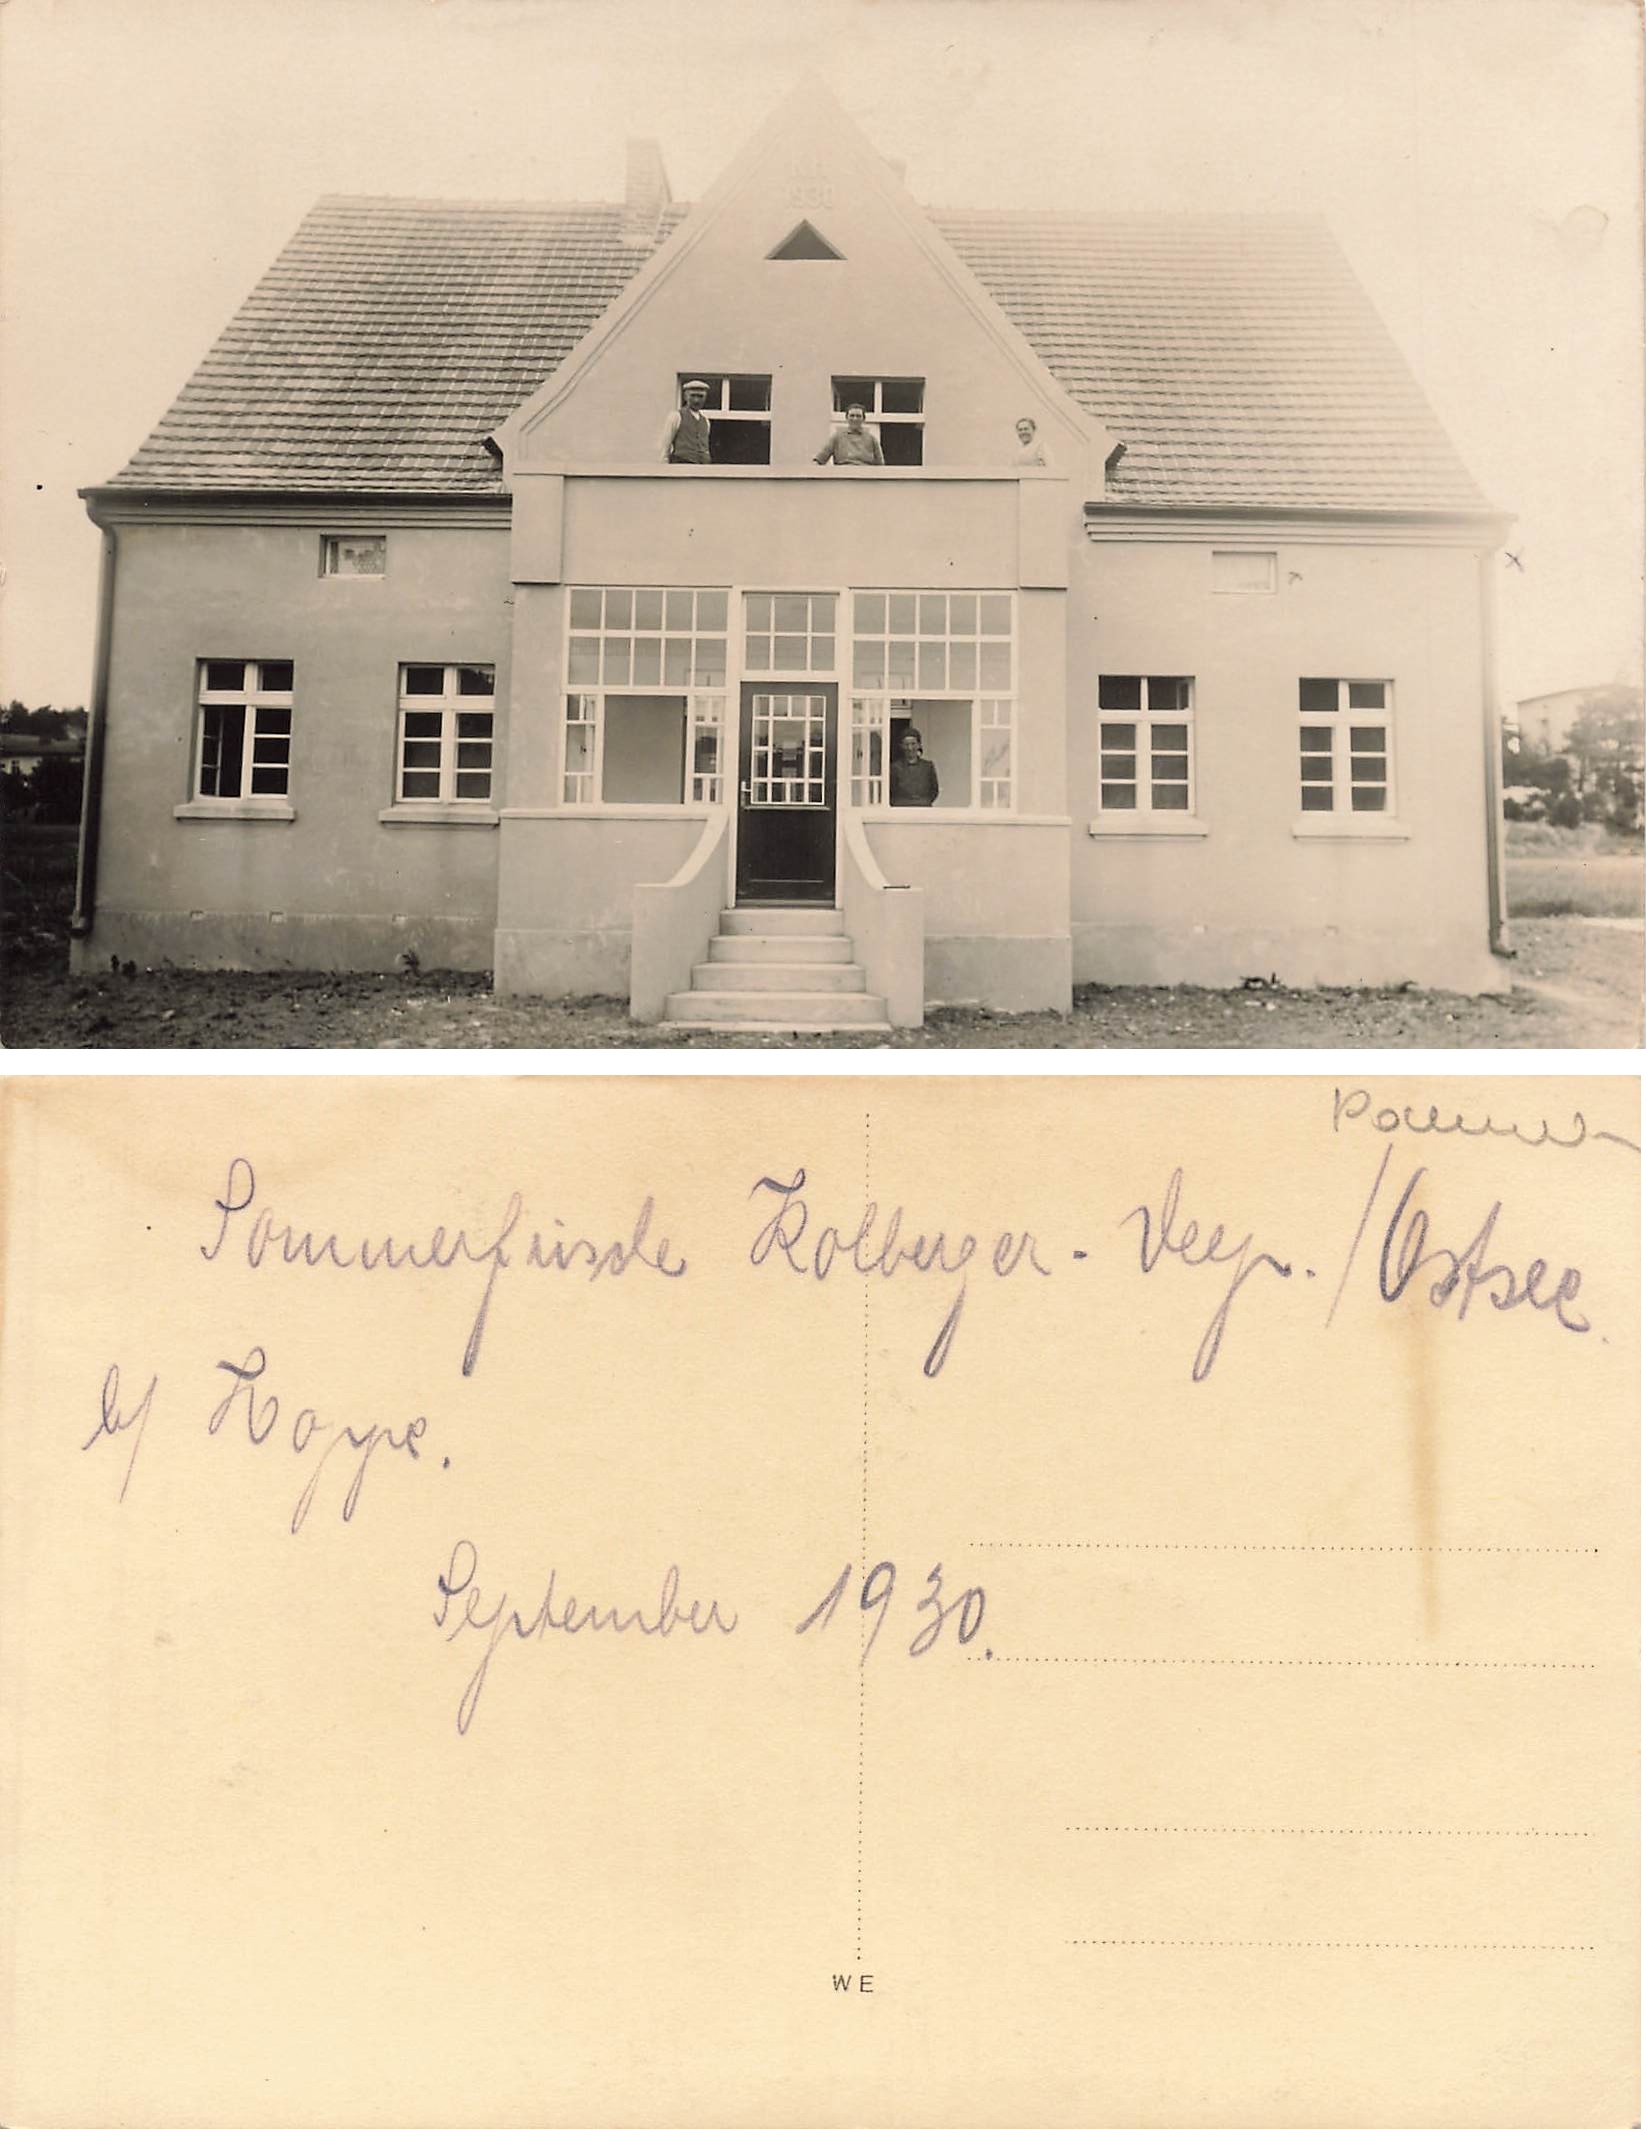 1930
Pommern
Sommerfrische Kolberger-Deep. / Ostsee.
b/ Hoppe.
September 1930.
WE